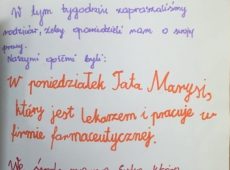 W tym tygodniu zaprosiliśmy
rodziców, żeby opowiedzieli nam o swojej
pracy.
Naszymi gośćmi byli:
w poniedziałek Tata Marysi,
który jest lekarzem i pracuje w
firmie farmaceutycznej.